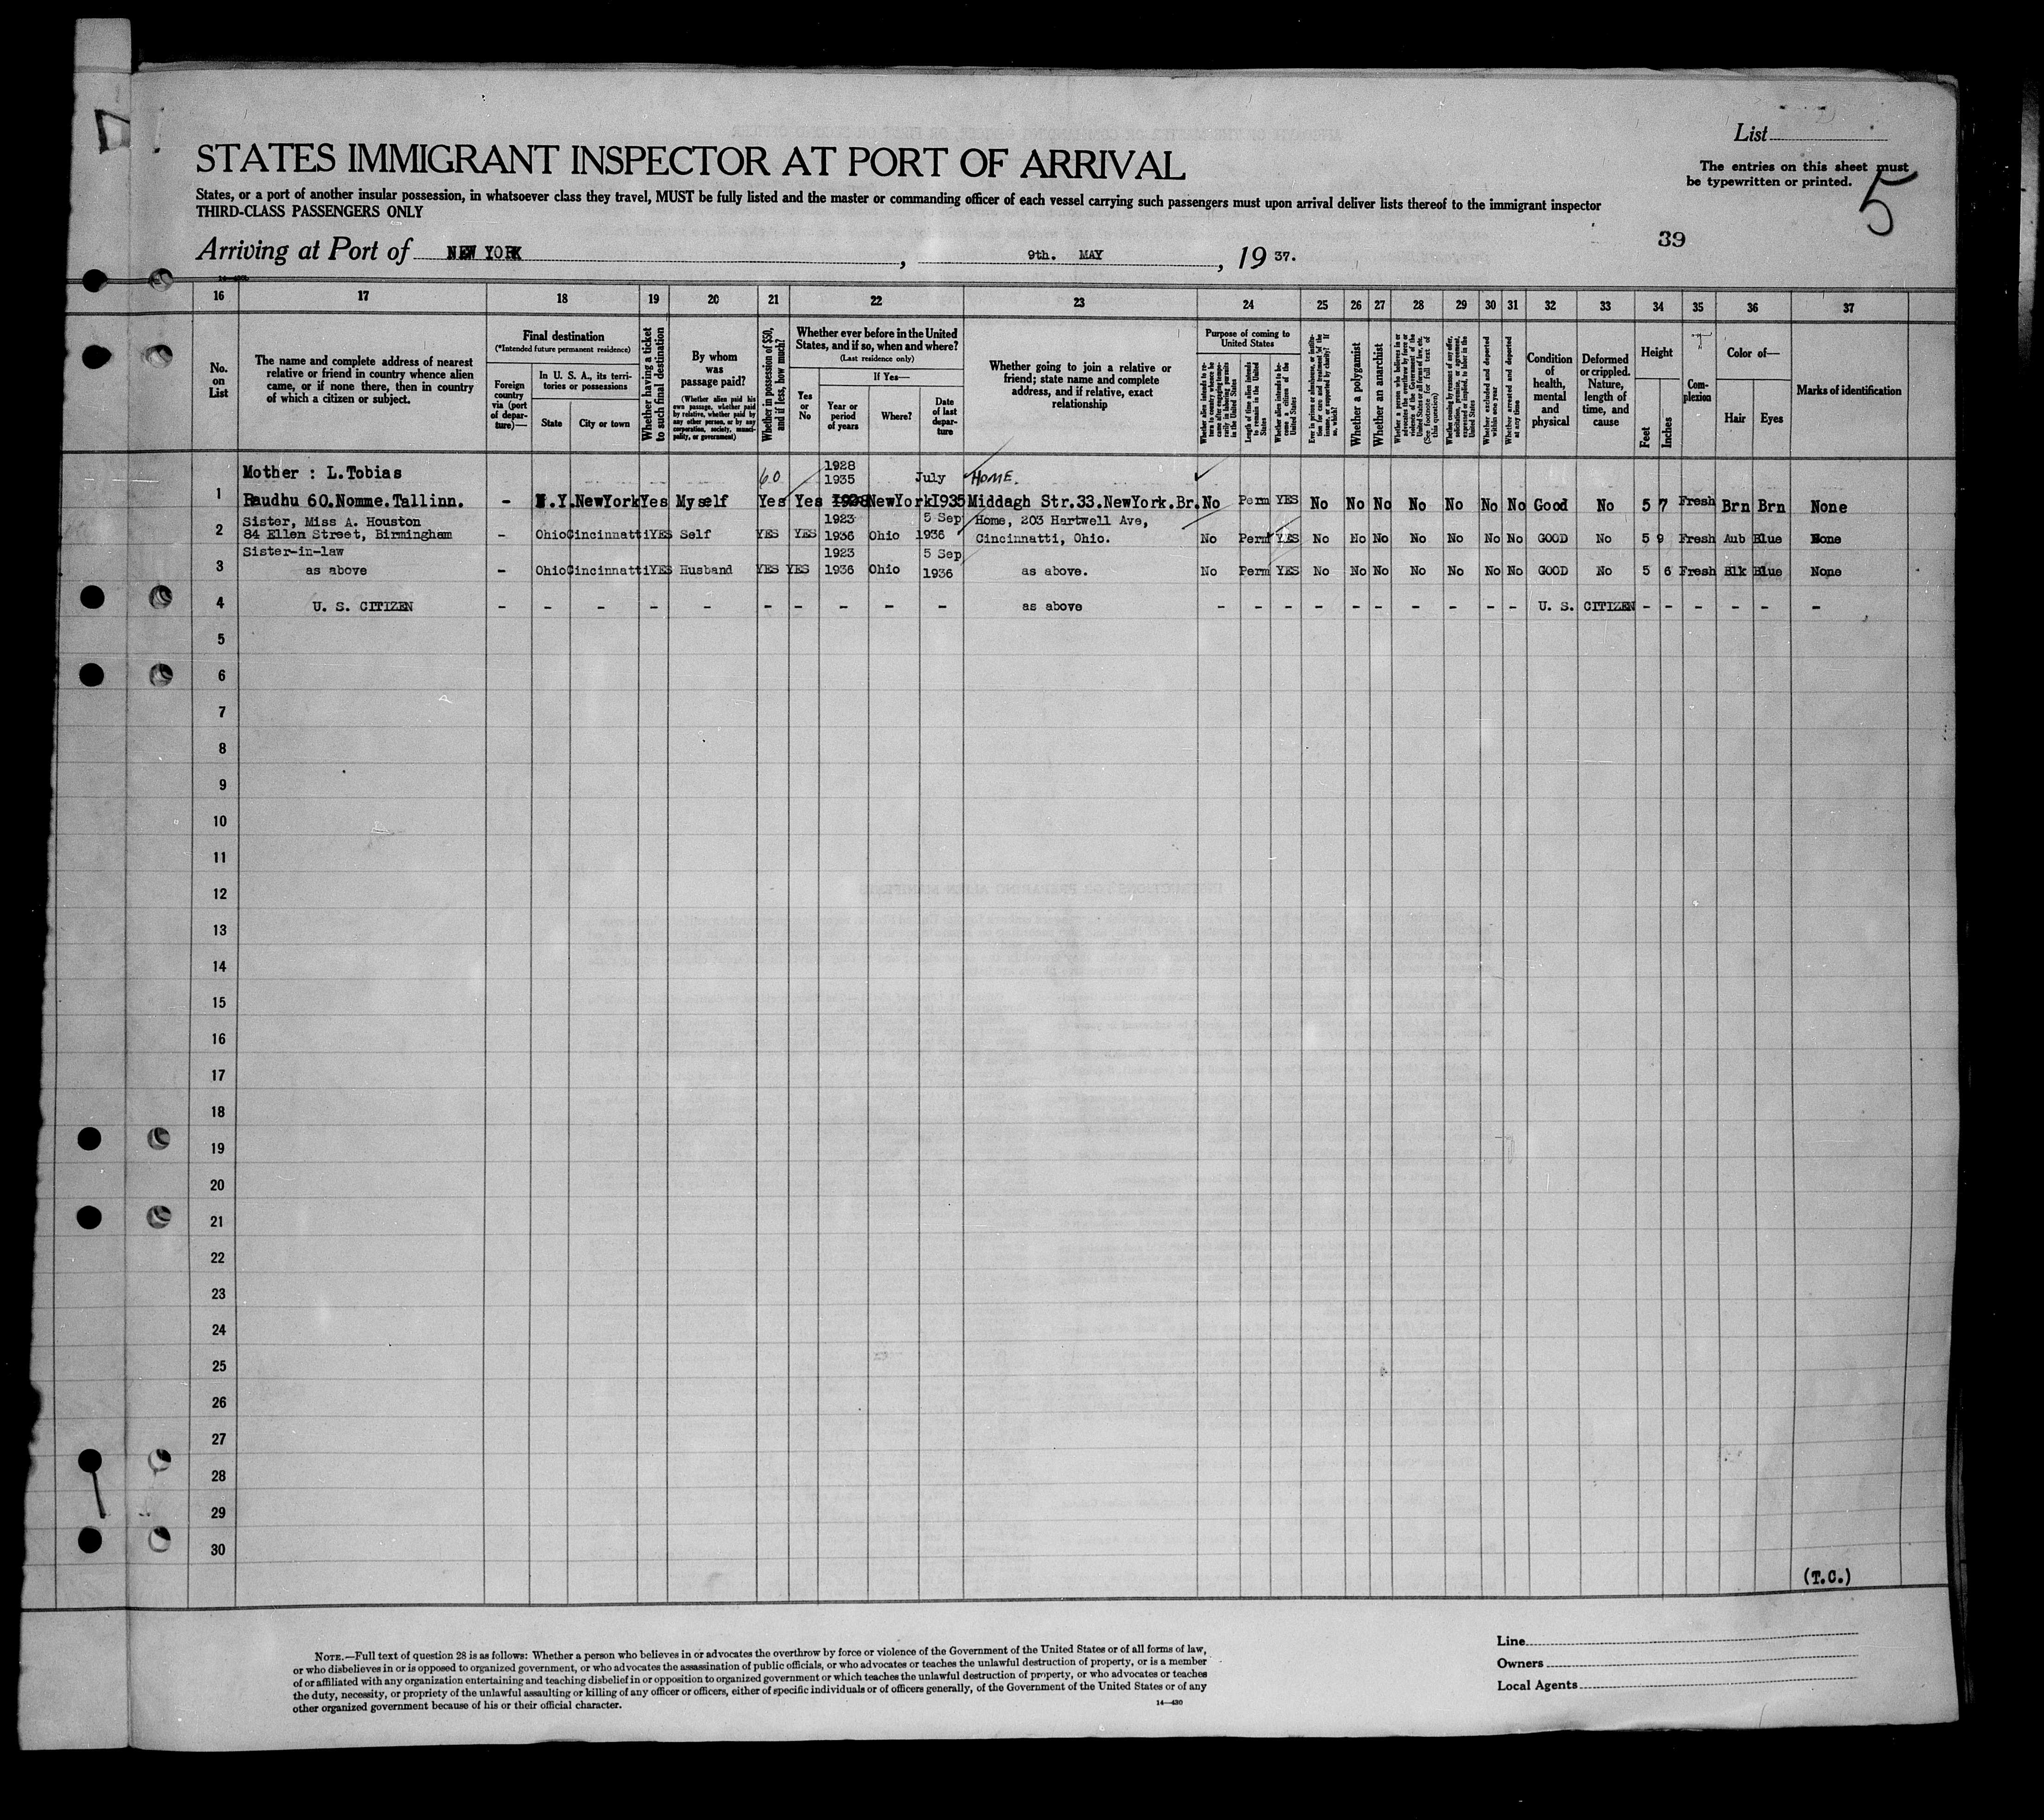 List
STATES IMMIGRANT INSPECTOR AT PORT OF ARRIVAL
The entries on this sheet must
be typewritten or printed.
5
States, or a port of another insular possession, in whatsoever class they travel, MUST be fully listed and the master or commanding officer of each vessel carrying such passengers must upon arrival deliver lists thereof to the immigrant inspector
THIRD-CLASS PASSENGERS ONLY
39
Arriving at Port of NEW YORK, 9th. MAY, 19 37.
16 17 18 19 20 21 22 23 24 25 26 27 28 29 30 31 32 33 34 35 36 37
No. on List
The name and complete address of nearest relative or friend in country whence alien came, or if none there, then in country of which a citizen or subject.
Final destination
(*Intended future permanent residence)
Foreign country via (port of departure)—
In U. S. A., its territories or possessions
State
City or town
Whether having a ticket to such final destination
By whom was passage paid?
(Whether alien paid his own passage, whether paid by relative, whether paid by any other person, or by any corporation, society, municipality, or government)
Whether in possession of $50, and if less, how much?
Whether ever before in the United States, and if so, when and where?
(Last residence only)
Yes or No
If Yes—
Year or period of years
Where?
Date of last departure
Whether going to join a relative or friend; state name and complete address, and if relative, exact relationship
Purpose of coming to United States
Length of time alien intends to remain in the United States
Whether alien intends to become a citizen of the United States
Whether a polygamist
Whether an anarchist
(See footnote for full text of this question)
Whether arrested and deported at any time
Condition of health, mental and physical
Deformed or crippled. Nature, length of time, and cause
Height
Feet
Inches
Complexion
Color of—
Hair
Eyes
Marks of identification
Mother : L.Tobias 60 1928 1935 July HOME.
1 Raudhu 60.Nomme.Tallinn. - N.Y. NewYork Yes Myself Yes Yes 1928 NewYork I935 Middagh Str.33.NewYork.Br. No Perm YES No No No No No No No Good No 5 7 Fresh Brn Brn None
Sister, Miss A. Houston 1923 5 Sep Home, 203 Hartwell Ave,
2 84 Ellen Street, Birmingham - Ohio Cincinnatti YES Self YES YES 1936 Ohio 1936 Cincinnatti, Ohio. No Perm YES No No No No No No No GOOD No 5 9 Fresh Aub Blue None
Sister-in-law 1923 5 Sep
3 as above - Ohio Cincinnatti YES Husband YES YES 1936 Ohio 1936 as above. No Perm YES No No No No No No No GOOD No 5 6 Fresh Blk Blue None
4 U. S. CITIZEN - - - - - - - - - - as above - - - - - - - - - - U. S. CITIZEN - - - - - -
5
6
7
8
9
10
11
12
13
14
15
16
17
18
19
20
21
22
23
24
25
26
27
28
29
30
(T.C.)
NOTE.—Full text of question 28 is as follows: Whether a person who believes in or advocates the overthrow by force or violence of the Government of the United States or of all forms of law,
or who disbelieves in or is opposed to organized government, or who advocates the assassination of public officials, or who advocates or teaches the unlawful destruction of property, or is a member
of or affiliated with any organization entertaining and teaching disbelief in or opposition to organized government or which teaches the unlawful destruction of property, or who advocates or teaches
the duty, necessity, or propriety of the unlawful assaulting or killing of any officer or officers, either of specific individuals or of officers generally, of the Government of the United States or of any
other organized government because of his or their official character.
14—430
Line
Owners
Local Agents